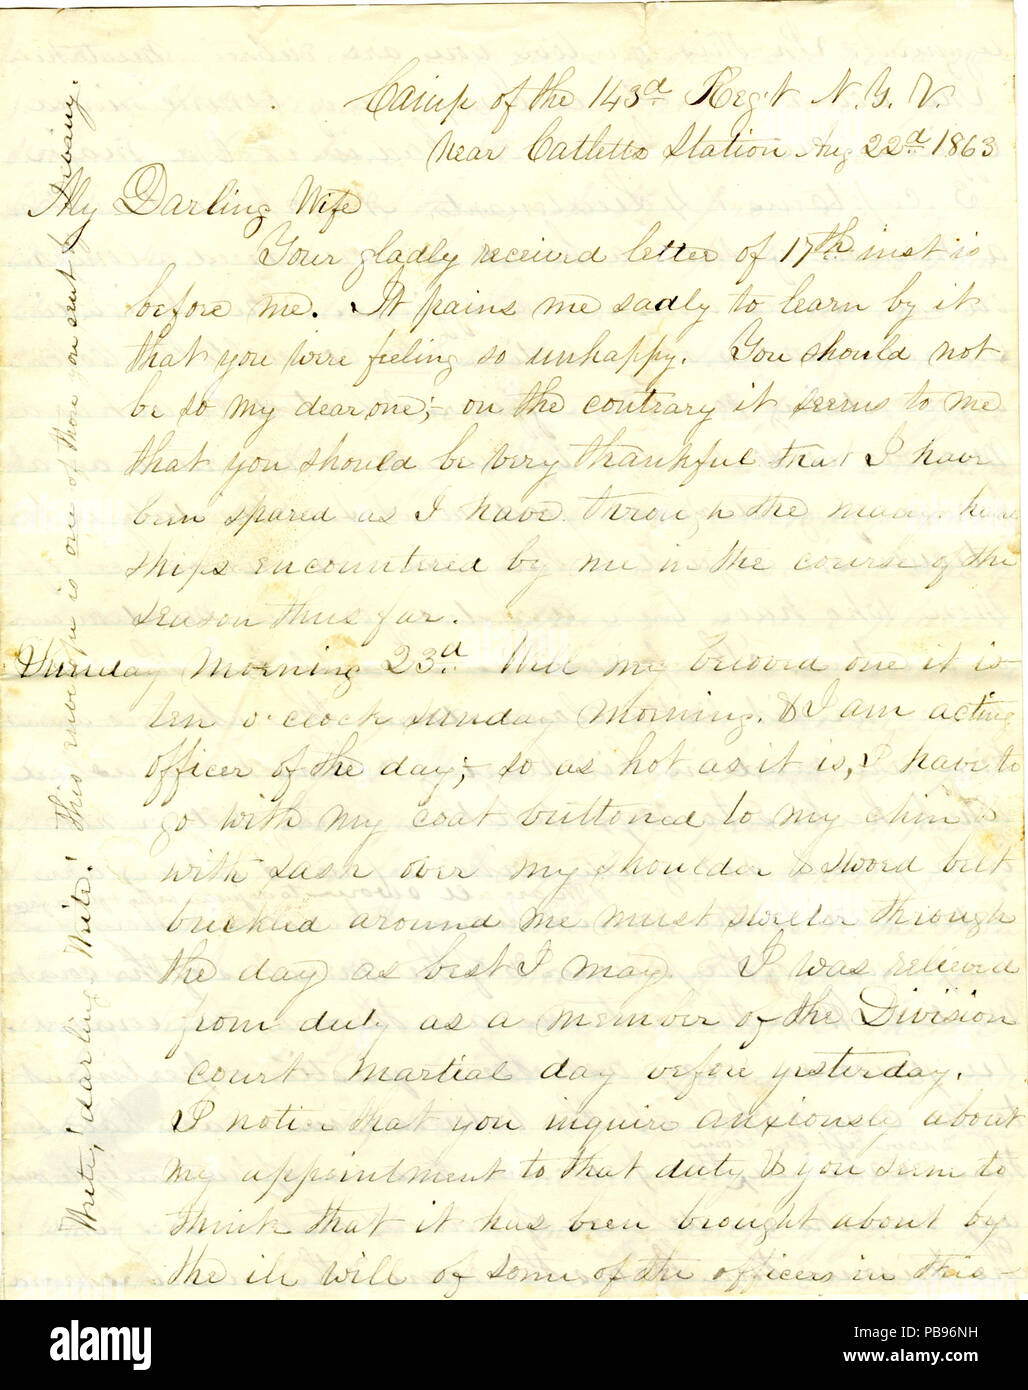 Camp of the 143d Regt N. Y. V.
near Catletts Station Aug 22d 1863
My Darling Wife
Your gladly received letter of 17th inst is
before me. It pains me sadly to learn by it
that you were feeling so unhappy. You should not
be so my dear one;- on the contrary it seems to me
that you should be very thankful that I have
been spared as I have through the many hard
ships encountered by me in the course of the
season thus far.
Sunday Morning 23d. Well my beloved one it is
ten o'clock Sunday Morning. & I am acting
officer of the day;- so as hot as it is, I have to
go with my coat buttoned to my chin &
with sash over my shoulder & sword belt
buckled around me must swelter through
the day as best I may. I was relieved
from duty as a member of the Division
court Martial day before yesterday.
I notice that you inquire anxiously about
my appointment to that duty & you seem to
think that it has been brought about by
the ill will of some of the officers in this-
Write, darling. Write! This envelope is one of those you sent by
alamy
Image ID: PB96NH
www.alamy.com